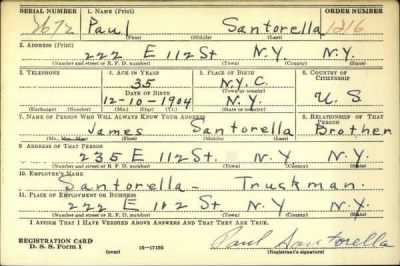 SERIAL NUMBER 1. NAME (Print) ORDER NUMBER
2672 Paul Santorella 1216
(First) (Middle) (Last)
2. ADDRESS (Print)
222 E 112 St N.Y. N.Y.
(Number and street or R. F. D. number) (Town) (County) (State)
3. TELEPHONE 4. AGE IN YEARS 5. PLACE OF BIRTH 6. COUNTRY OF CITIZENSHIP
35 N.Y.C.
DATE OF BIRTH (Town or county)
12-10-1904 N.Y. U.S.
(Exchange) (Number) (Mo.) (Day) (Yr.) (State or country)
7. NAME OF PERSON WHO WILL ALWAYS KNOW YOUR ADDRESS 8. RELATIONSHIP OF THAT PERSON
James Santorella Brother
(Mr., Mrs., Miss) (First) (Middle) (Last)
9. ADDRESS OF THAT PERSON
235 E 112 St. N.Y. N.Y.
(Number and street or R. F. D. number) (Town) (County) (State)
10. EMPLOYER'S NAME
Santorella - Truskman.
11. PLACE OF EMPLOYMENT OR BUSINESS
222 E 112 St N.Y. N.Y.
(Number and street or R. F. D. number) (Town) (County) (State)
I AFFIRM THAT I HAVE VERIFIED ABOVE ANSWERS AND THAT THEY ARE TRUE.
REGISTRATION CARD
D. S. S. Form 1 (over) 16-17105 Paul Santorella
(Registrant's signature)